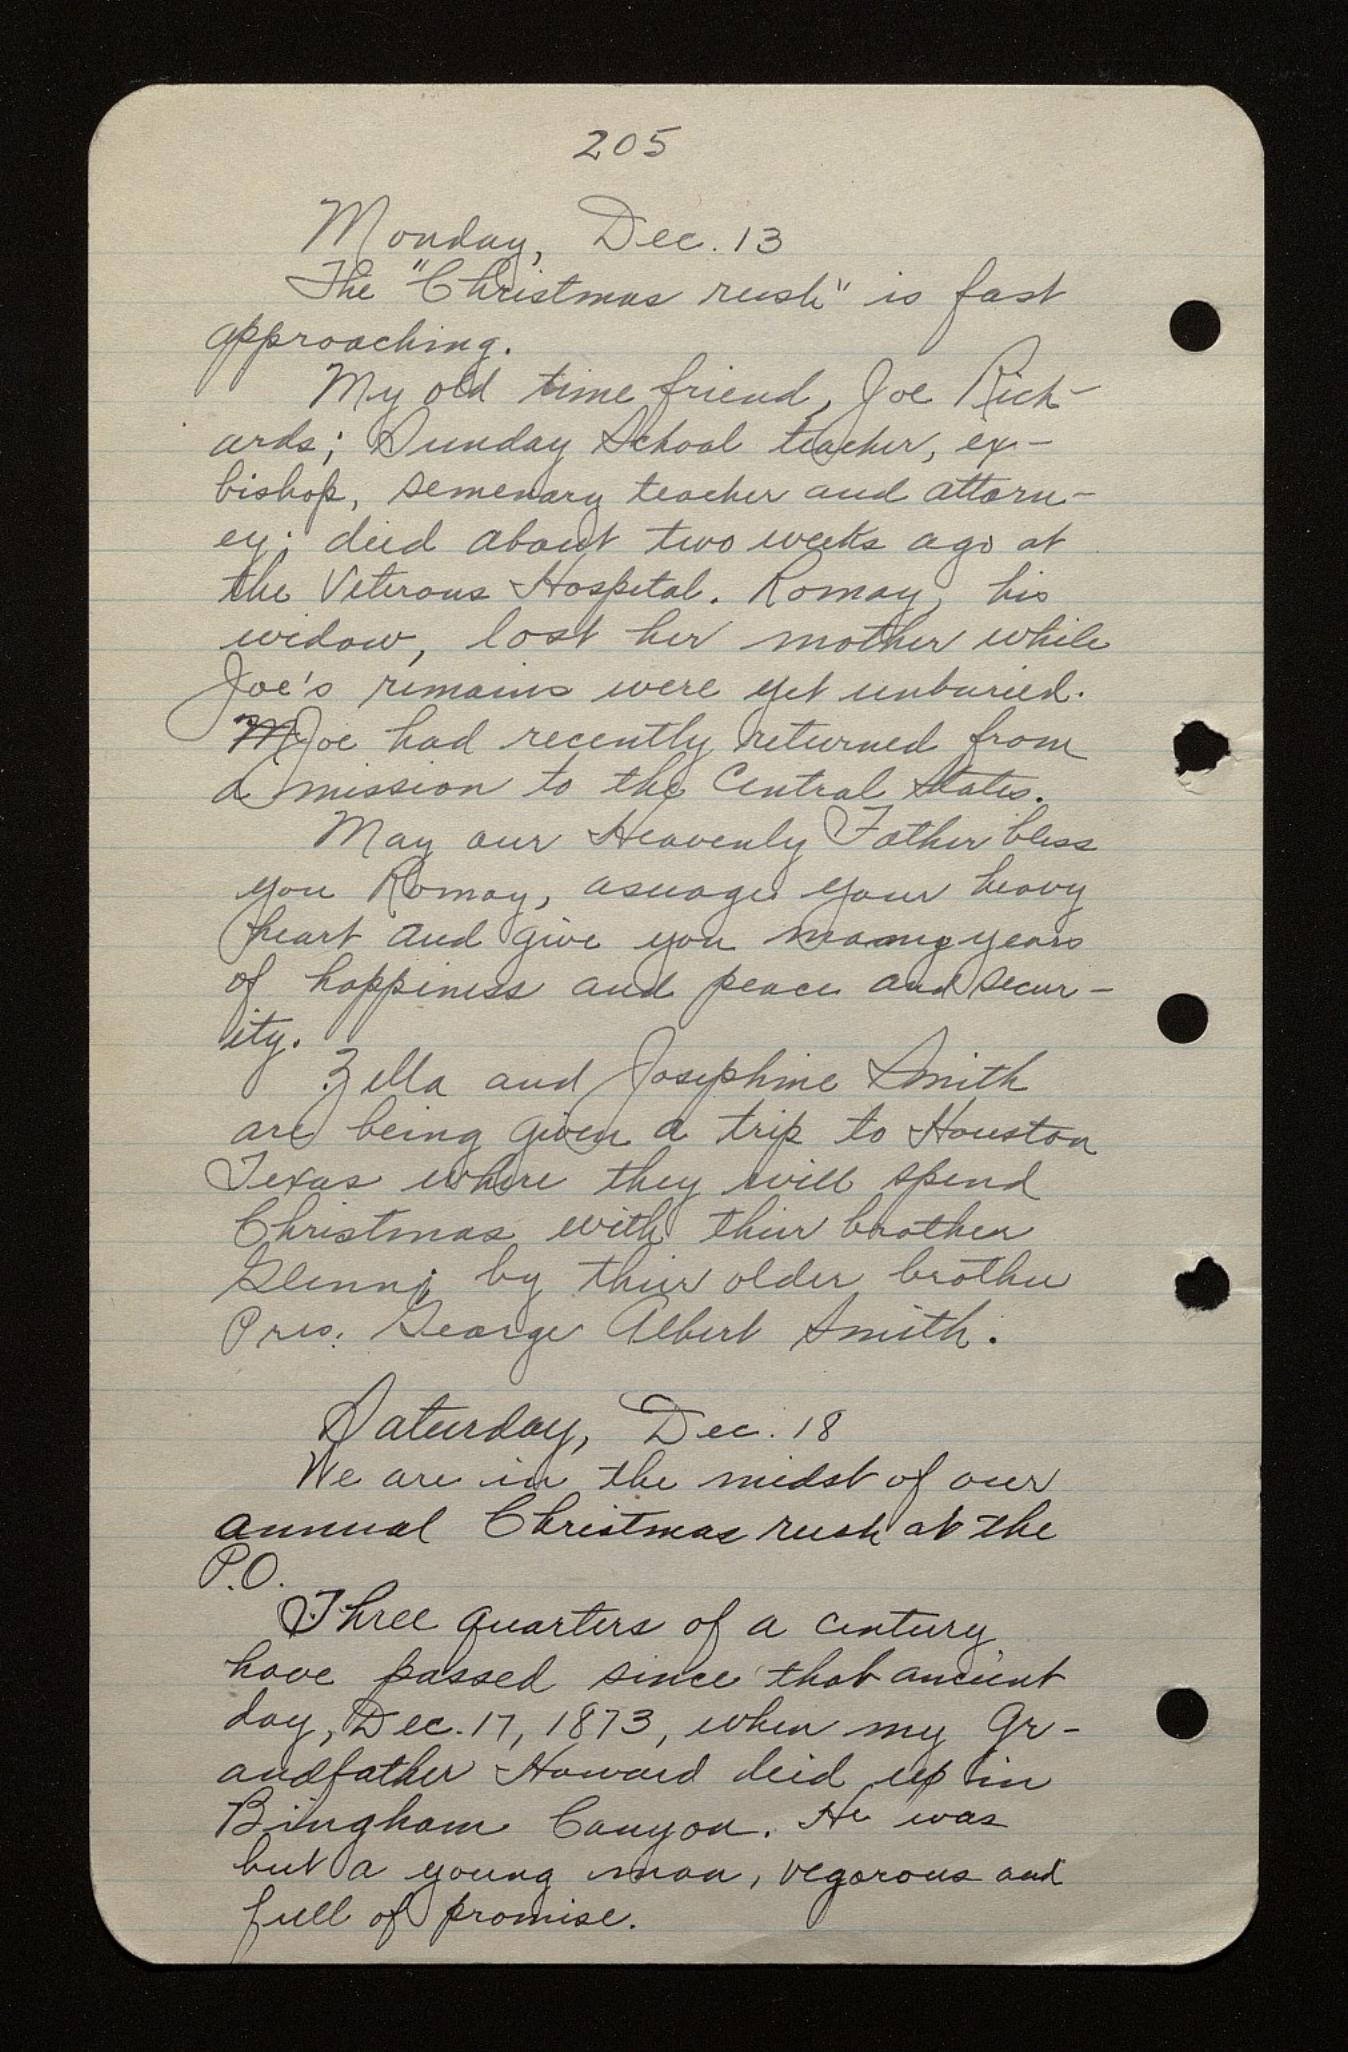 205
Monday, Dec. 13
The "Christmas rush" is fast
approaching.
My old time friend, Joe Rich-
ards; Sunday School teacher, ex-
bishop, semenary teacher and attorn-
ey; died about two weeks ago at
the Veterans Hospital. Romay, his
widow, lost her mother while
Joe's remains were yet unburied.
M Joe had recently returned from
a mission to the Central States.
May our Heavenly Father bless
you Romay, asuage your heavy
heart and give you many years
of happiness and peace and secur-
ity.
Zella and Josephine Smith
are being given a trip to Houston
Texas where they will spend
Christmas with their brother
Glenn; by their older brother
Pres. George Albert Smith.
Saturday, Dec. 18
We are in the midst of our
annual Christmas rush at the
P.O.
Three quarters of a century
have passed since that ancient
day, Dec. 17, 1873, when my gr-
andfather Howard died up in
Bingham Canyon. He was
but a young man, vegorous and
full of promise.